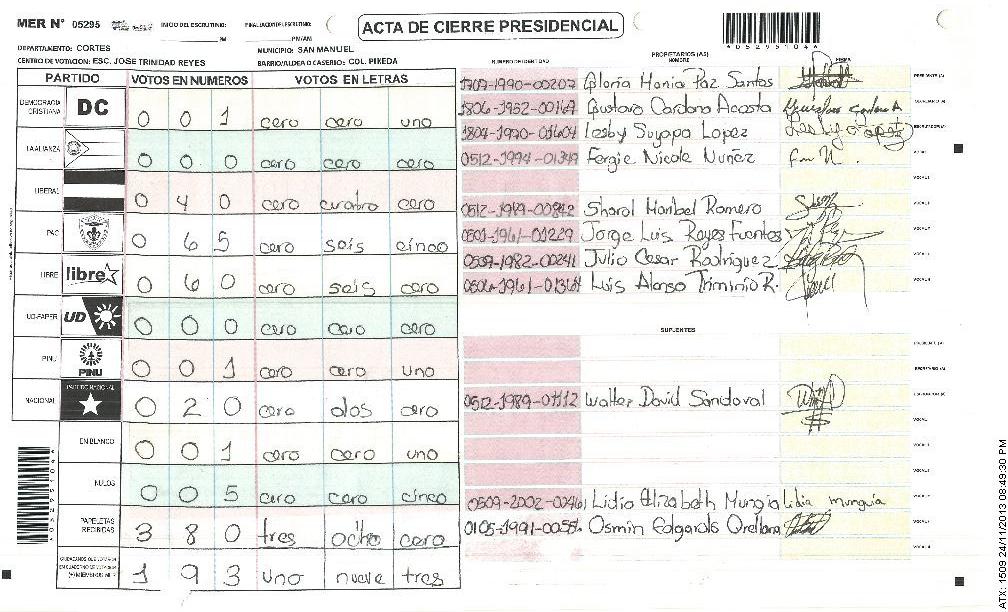 MER N° 05295 INICIO DEL ESCRUTINIO: FINALIZACION ESCRUTINIO:
PM PM/AM
ACTA DE CIERRE PRESIDENCIAL
A05295104
DEPARTAMENTO: CORTES MUNICIPIO: SAN MANUEL
CENTRO DE VOTACION: ESC. JOSE TRINIDAD REYES BARRIO/ALDEA O CASERIO: COL. PIKEDA
PARTIDO VOTOS EN NUMEROS VOTOS EN LETRAS
DEMOCRACIA CRISTIANA DC 0 0 1 cero cero uno
LA ALIANZA 0 0 0 cero cero cero
LIBERAL 0 4 0 cero cuatro cero
PAC 0 6 5 cero seis cinco
LIBRE libre 0 6 0 cero seis cero
UD-FAPER UD 0 0 0 cero cero cero
PINU PINU 0 0 1 cero cero uno
NACIONAL PARTIDO NACIONAL 0 2 0 cero dos cero
EN BLANCO 0 0 1 cero cero uno
NULOS 0 0 5 cero cero cinco
PAPELETAS RECIBIDAS 3 8 0 tres ocho cero
1 9 3 uno nueve tres
PROPIETARIOS (AS)
NUMERO DE IDENTIDAD NOMBRE FIRMA
1707-1990-00207 Gloria Hania Paz Santos PRESIDENTE (A)
1806-1952-00167 Gustavo Cardona Acosta SECRETARIO (A)
1804-1990-01604 Lesby Suyapa Lopez ESCRUTADOR (A)
0512-1994-01349 Fergie Nicole Nuñez VOCAL I
0512-1979-00842 Sharol Maribel Romero
0501-1961-01229 Jorge Luis Reyes Fuentes
0509-1982-00241 Julio Cesar Rodriguez
0506-1961-01364 Luis Alonso Triminio R.
SUPLENTES
PRESIDENTE (A)
SECRETARIO (A)
0512-1989-01112 Walter David Sandoval ESCRUTADOR (A)
0509-2002-00461 Lidia Elizabeth Mungia Lidia munguía
0105-1991-0055 Osmin Edgardo Orellana
A05295104
ATX: 1509 24/11/2013 08:49:30 PM